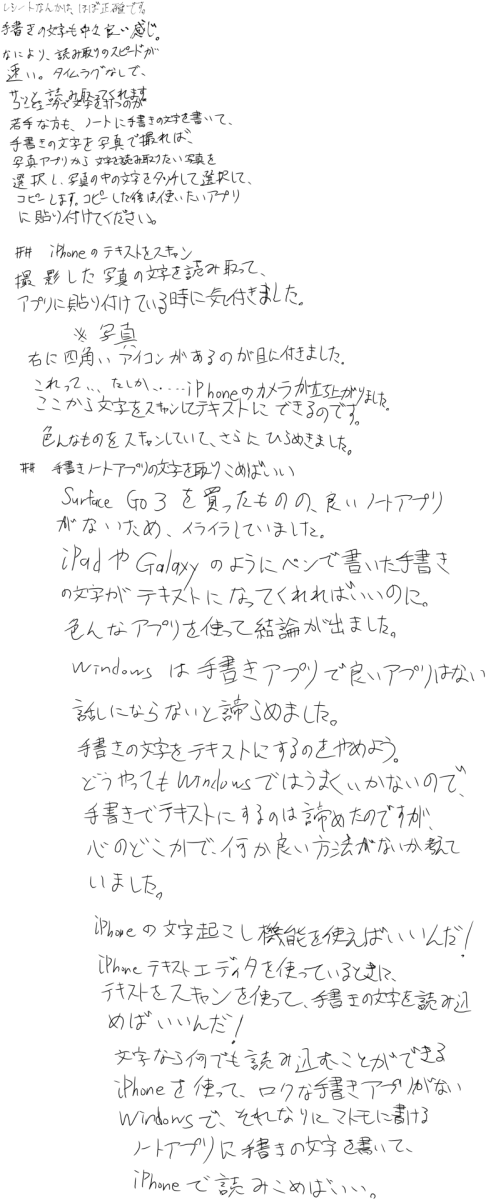 レシートなんかは、ほぼ正確です。
手書きの文字も中々良い感じ。
なにより、読み取りのスピードが
速い。タイムラグなしで、
サッと読み取ってくれます。
コンピュータで文字を打つのが
苦手な方も、ノートに手書きの文字を書いて、
手書きの文字を写真で撮れば、
写真アプリから文字を読み取りたい写真を
選択し、写真の中の文字をタッチして選択して、
コピーします。コピーした後は使いたいアプリ
に貼り付けてください。
## iPhoneのテキストをスキャン
撮影した写真の文字を読み取って、
アプリに貼り付けている時に気付きました。
※写真
右に四角いアイコンがあるのが目に付きました。
これって、、、たしか、、、、、iPhoneのカメラが立ち上がりました。
ここから文字をスキャンしてテキストにできるのです。
色んなものをスキャンしていて、さらにひらめきました。
## 手書きノートアプリの文字を取りこめばいい
Surface Go 3を買ったものの、良いノートアプリ
がないため、イライラしていました。
iPadやGalaxyのようにペンで書いた手書き
の文字がテキストになってくれればいいのに。
色んなアプリを使って結論が出ました。
Windowsは手書きアプリで良いアプリはない
話しにならないと諦らめました。
手書きの文字をテキストにするのをやめよう。
どうやってもWindowsではうまくいかないので、
手書きでテキストにするのは諦めたのですが、
心のどこかで、何か良い方法がないか考えて
いました。
iPhoneの文字起こし機能を使えばいいんだ!
iPhoneテキストエディタを使っているときに、
テキストをスキャンを使って、手書きの文字を読み込
めばいいんだ!
文字なら何でも読み込むことができる
iPhoneを使って、ロクな手書きアプリがない
Windowsで、それなりにマトモに書ける
ノートアプリに手書きの文字を書いて、
iPhoneで読みこめばいい。